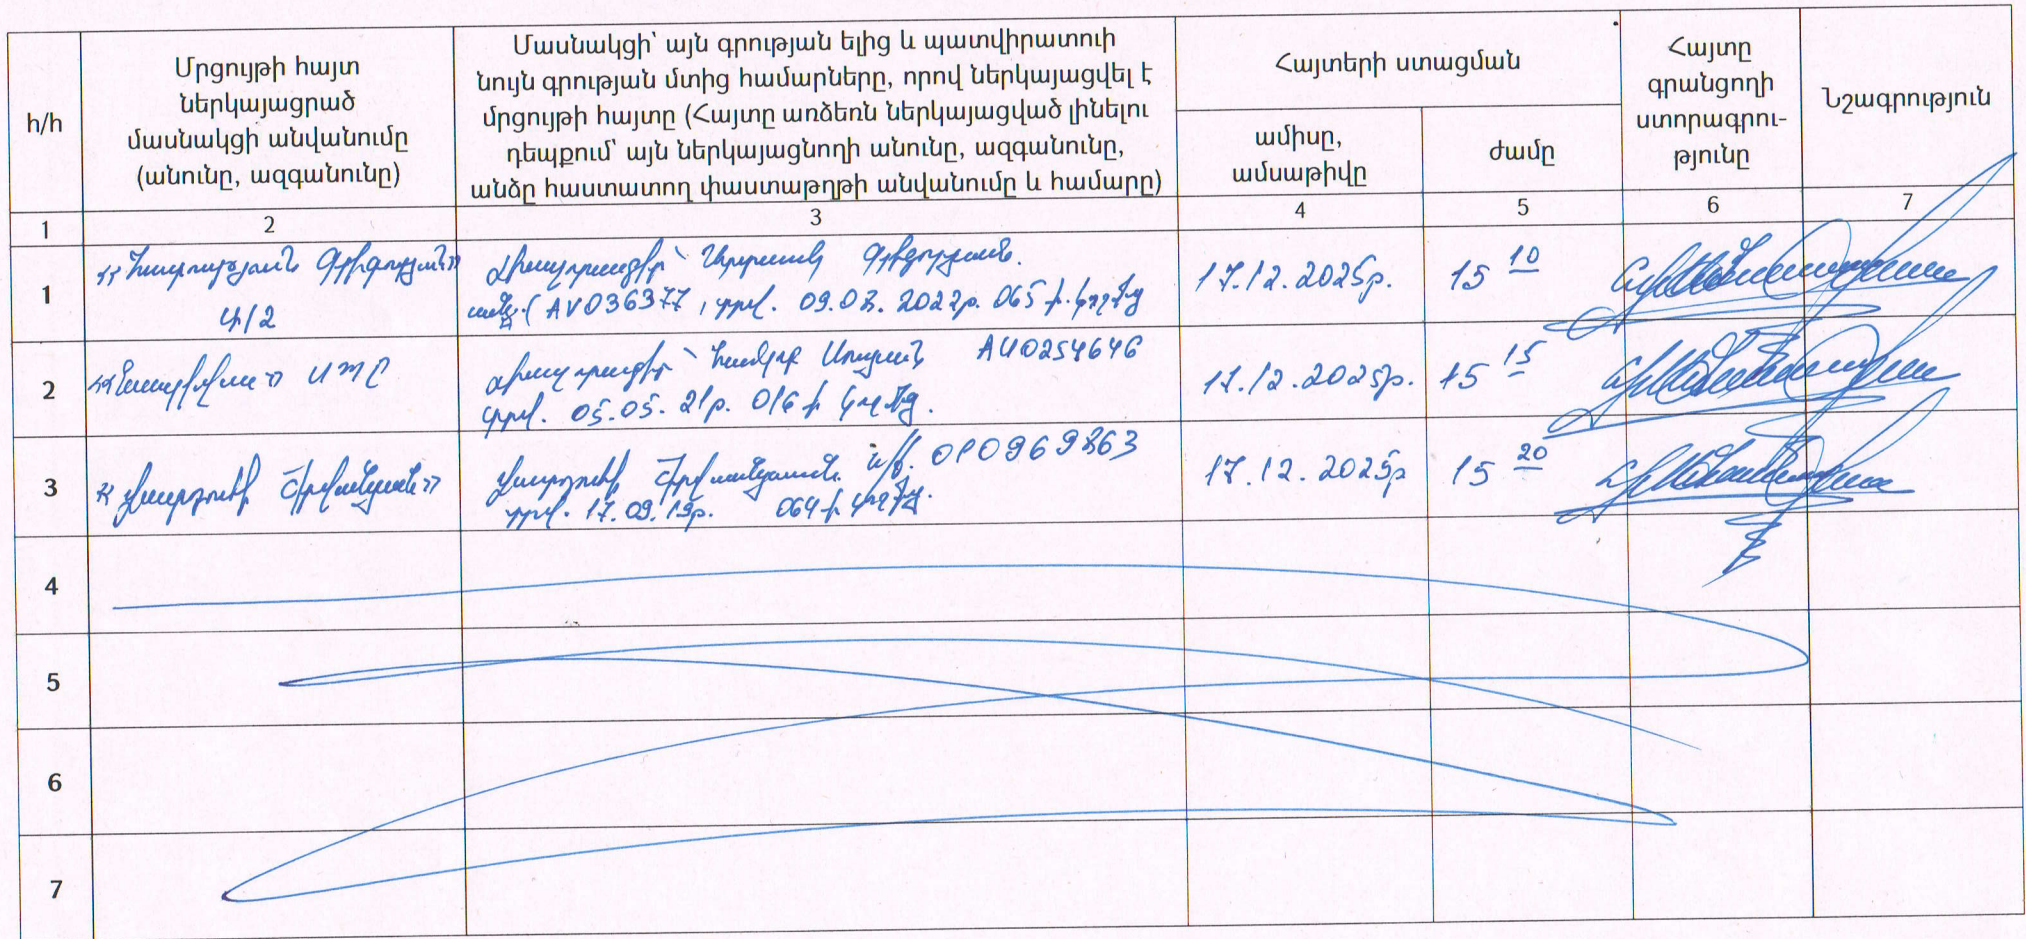 հ/հ
Մրցույթի հայտ
ներկայացրած
մասնակցի անվանումը
(անունը, ազգանունը)
Մասնակցի՝ այն գրության ելից և պատվիրատուի
նույն գրության մտից համարները, որով ներկայացվել է
մրցույթի հայտը (Հայտը առձեռն ներկայացված լինելու
դեպքում՝ այն ներկայացնողի անունը, ազգանունը,
անձը հաստատող փաստաթղթի անվանումը և համարը)
Հայտերի ստացման
ամիսը,
ամսաթիվը
ժամը
Հայտը
գրանցողի
ստորագրու-
թյունը
Նշագրություն
1 2 3 4 5 6 7
1 Գրիգորյան Ա/Ձ
Լիազորագիր՝ Գրիգորյան.
(AV036377, տրվ. 09.03.2022թ. 065-ի կողմից
17.12.2025թ. 15 10
2 ՍՊԸ
Լիազորագիր՝ AU0254646
տրվ. 05.05.21թ. 016-ի կողմից.
17.12.2025թ. 15 15
3 Վարդուհի
Վարդուհի 010969863
տրվ. 17.09.19թ. 064-ի կողմից.
17.12.2025թ 15 20
4
5
6
7